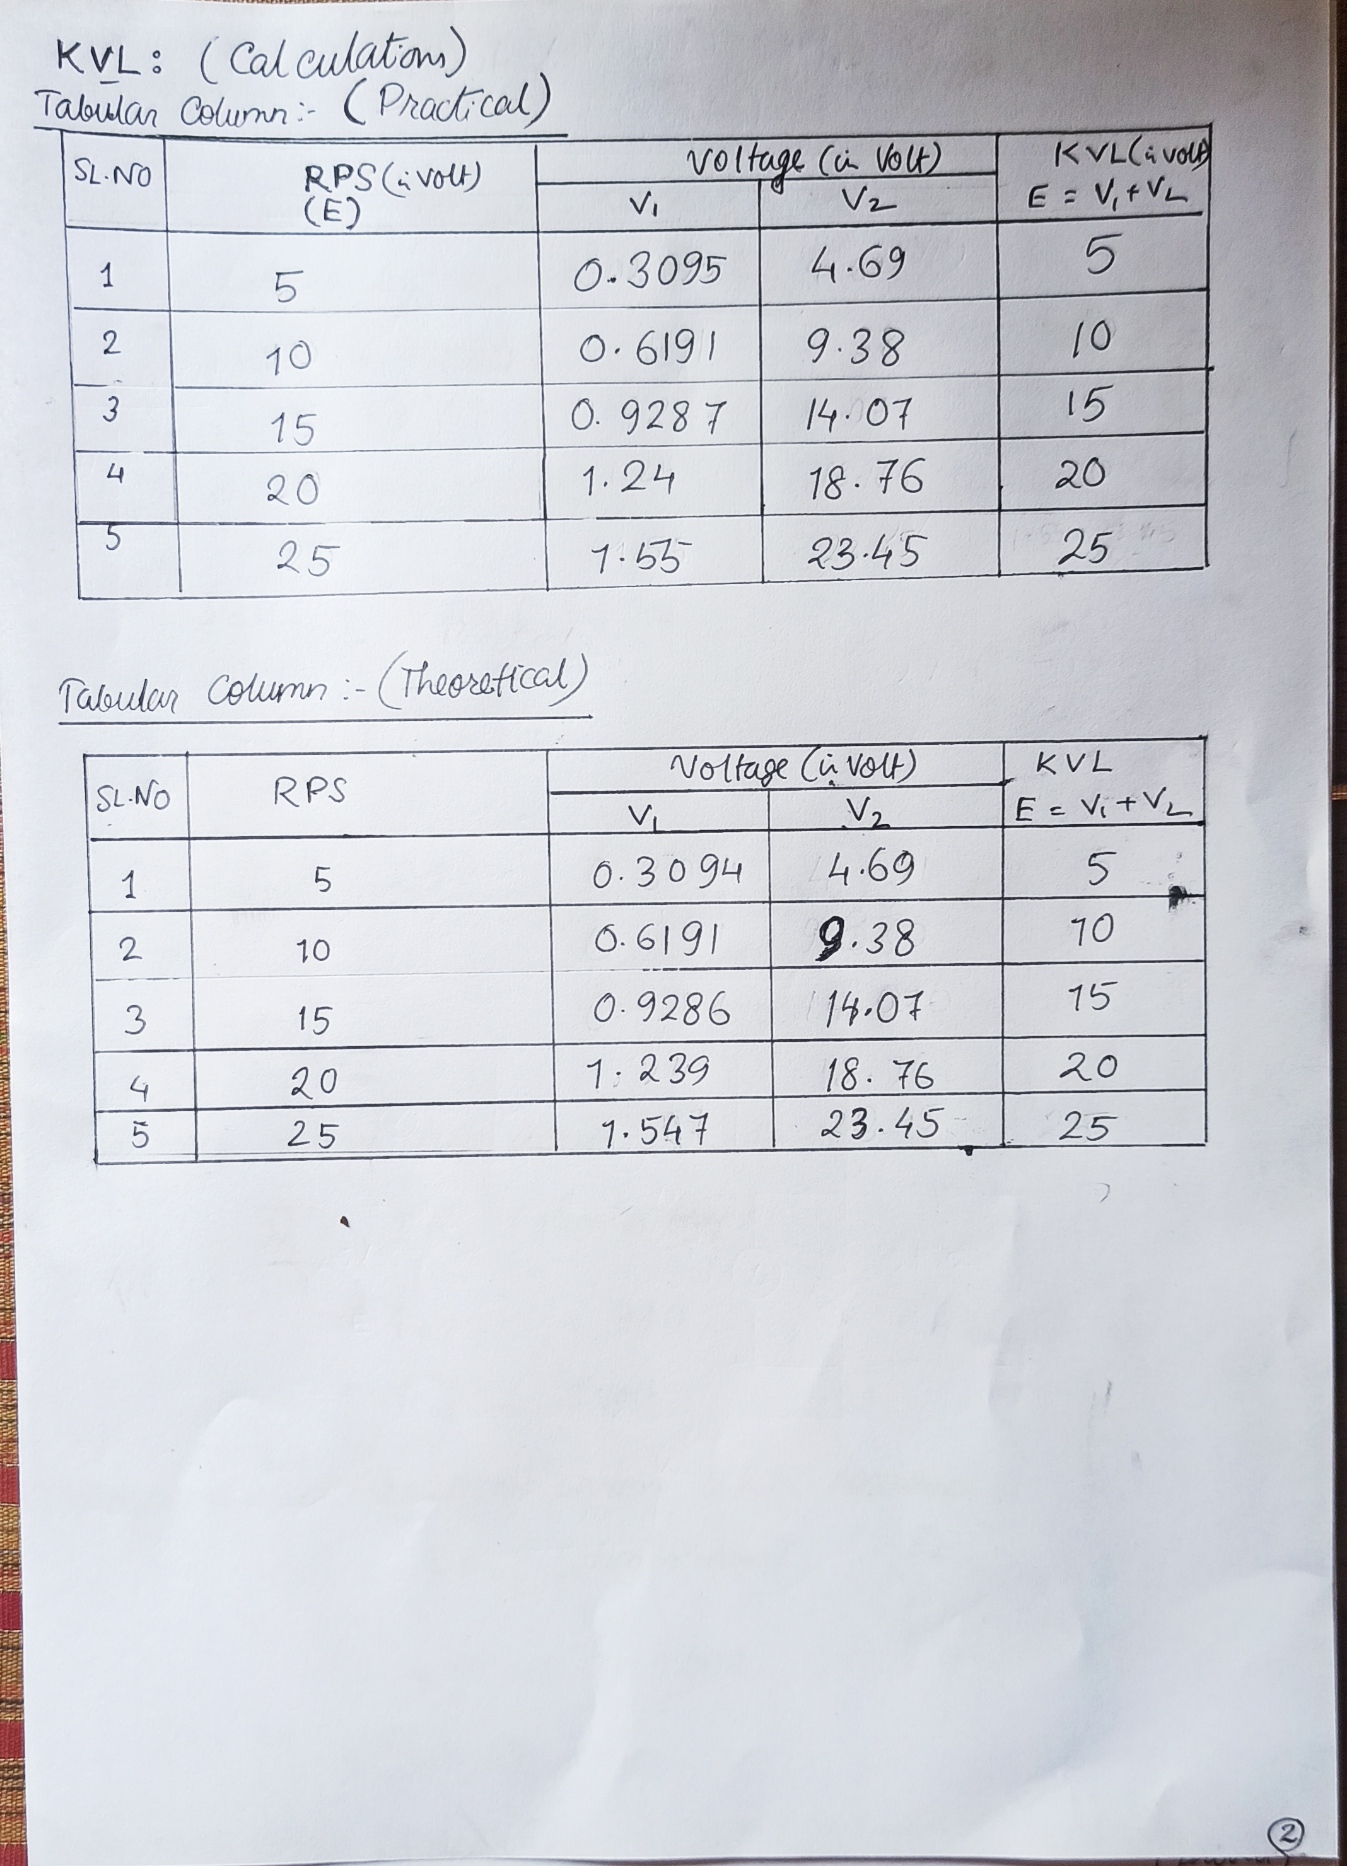 KVL: (Calculations)
Tabular Column:- (Practical)
SL.NO RPS (in volt) (E) Voltage (in Volt) KVL (in volt)
V1 V2 E = V1 + V2
1 5 0.3095 4.69 5
2 10 0.6191 9.38 10
3 15 0.9287 14.07 15
4 20 1.24 18.76 20
5 25 1.55 23.45 25
Tabular Column:- (Theoretical)
SL.NO RPS Voltage (in volt) KVL
V1 V2 E = V1 + V2
1 5 0.3094 4.69 5
2 10 0.6191 9.38 10
3 15 0.9286 14.07 15
4 20 1.239 18.76 20
5 25 1.547 23.45 25
2